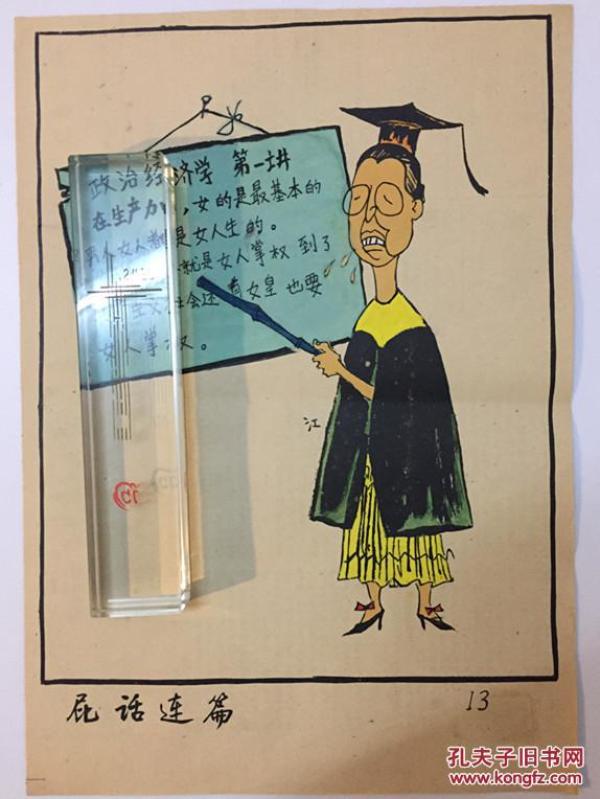 政治经济学 第一讲
在生产力 ，女的是最基本的
人女人 是女人生的。
就是女人掌权 到了
主义社会还有女皇 也要
女人掌权。
江
屁话连篇
13
孔夫子旧书网
www.kongfz.com